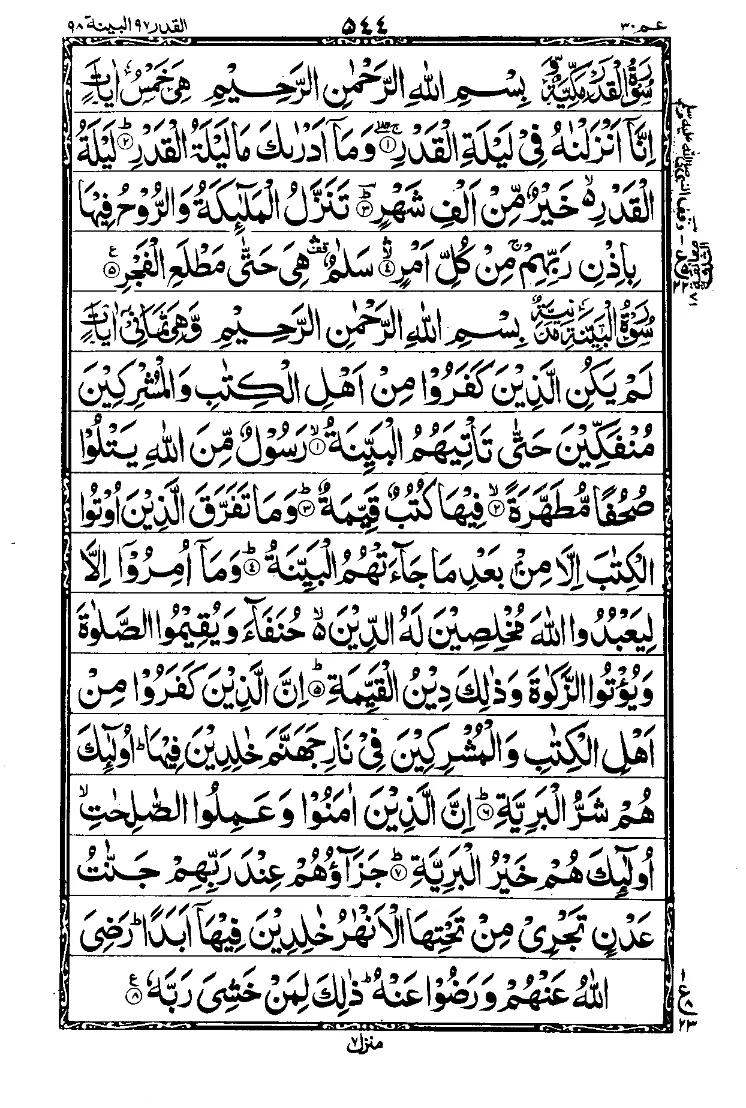 عـم ٣٠ ٥٤٤ القدر ٩٧ البينة ٩٨
سُوْرَةُ الْقَدْرِ مَكِّيَّةٌ بِسْمِ اللّٰهِ الرَّحْمٰنِ الرَّحِيْمِ هِیَ خَمْسُ اٰيَاتٍ
اِنَّاۤ اَنْزَلْنٰهُ فِیْ لَيْلَةِ الْقَدْرِ ۚۖ‏﴿۱﴾ وَمَاۤ اَدْرٰىكَ مَا لَيْلَةُ الْقَدْرِؕ‏﴿۲﴾ لَيْلَةُ
الْقَدْرِ ۙ خَيْرٌ مِّنْ اَلْفِ شَهْرٍؕ‏﴿۳﴾ تَنَزَّلُ الْمَلٰٓٮِٕكَةُ وَالرُّوْحُ فِيْهَا
بِاِذْنِ رَبِّهِمْ‌ۚ مِنْ كُلِّ اَمْرٍ ۙ‏﴿۴﴾ سَلٰمٌ ۛ هِیَ حَتّٰى مَطْلَعِ الْفَجْرِ‏﴿۵﴾ ع
سُوْرَةُ الْبَيِّنَةِ مَدَنِيَّةٌ بِسْمِ اللّٰهِ الرَّحْمٰنِ الرَّحِيْمِ وَّهِیَ ثَمَانِیْ اٰيَاتٍ
لَمْ يَكُنِ الَّذِيْنَ كَفَرُوْا مِنْ اَهْلِ الْكِتٰبِ وَالْمُشْرِكِيْنَ
مُنْفَكِّيْنَ حَتّٰى تَاْتِيَهُمُ الْبَيِّنَةُ ۙ‏﴿۱﴾ رَسُوْلٌ مِّنَ اللّٰهِ يَتْلُوْا
صُحُفًا مُّطَهَّرَةً ۙ‏﴿۲﴾ فِيْهَا كُتُبٌ قَيِّمَةٌ ؕ‏﴿۳﴾ وَمَا تَفَرَّقَ الَّذِيْنَ اُوْتُوا
الْكِتٰبَ اِلَّا مِنْۢ بَعْدِ مَا جَآءَتْهُمُ الْبَيِّنَةُ ؕ‏﴿۴﴾ وَمَاۤ اُمِرُوْۤا اِلَّا
لِيَعْبُدُوا اللّٰهَ مُخْلِصِيْنَ لَهُ الدِّيْنَ ۙ حُنَفَآءَ وَيُقِيْمُوا الصَّلٰوةَ
وَيُؤْتُوا الزَّكٰوةَ‌ وَذٰلِكَ دِيْنُ الْقَيِّمَةِ ؕ‏﴿۵﴾ اِنَّ الَّذِيْنَ كَفَرُوْا مِنْ
اَهْلِ الْكِتٰبِ وَالْمُشْرِكِيْنَ فِیْ نَارِ جَهَنَّمَ خٰلِدِيْنَ فِيْهَا ؕ اُولٰٓٮِٕكَ
هُمْ شَرُّ الْبَرِيَّةِ ؕ‏﴿۶﴾ اِنَّ الَّذِيْنَ اٰمَنُوْا وَعَمِلُوا الصّٰلِحٰتِ ۙ
اُولٰٓٮِٕكَ هُمْ خَيْرُ الْبَرِيَّةِ ؕ‏﴿۷﴾ جَزَآؤُهُمْ عِنْدَ رَبِّهِمْ جَنّٰتُ
عَدْنٍ تَجْرِیْ مِنْ تَحْتِهَا الْاَنْهٰرُ خٰلِدِيْنَ فِيْهَاۤ اَبَدًا ؕ رَضِیَ
اللّٰهُ عَنْهُمْ وَرَضُوْا عَنْهُ ؕ ذٰلِكَ لِمَنْ خَشِیَ رَبَّهٗ‏﴿۸﴾ ع
منزل ٧